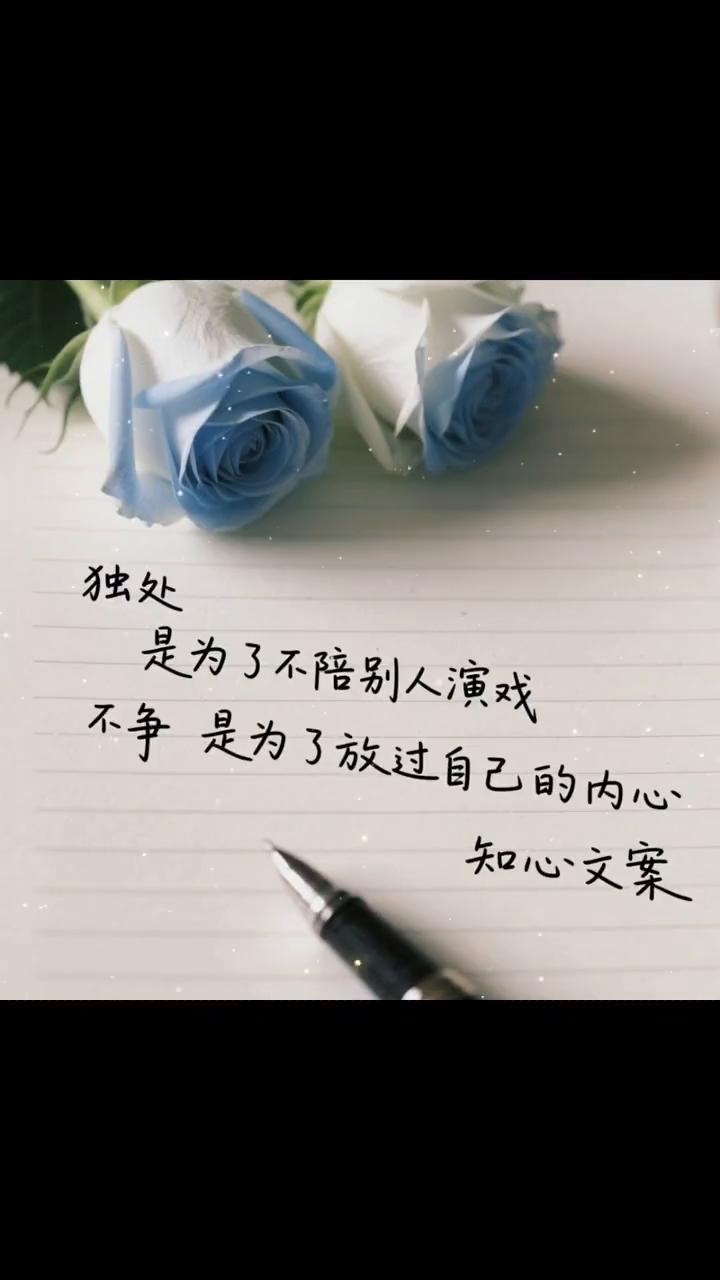 独处
是为了不陪别人演戏
不争 是为了放过自己的内心
知心文案